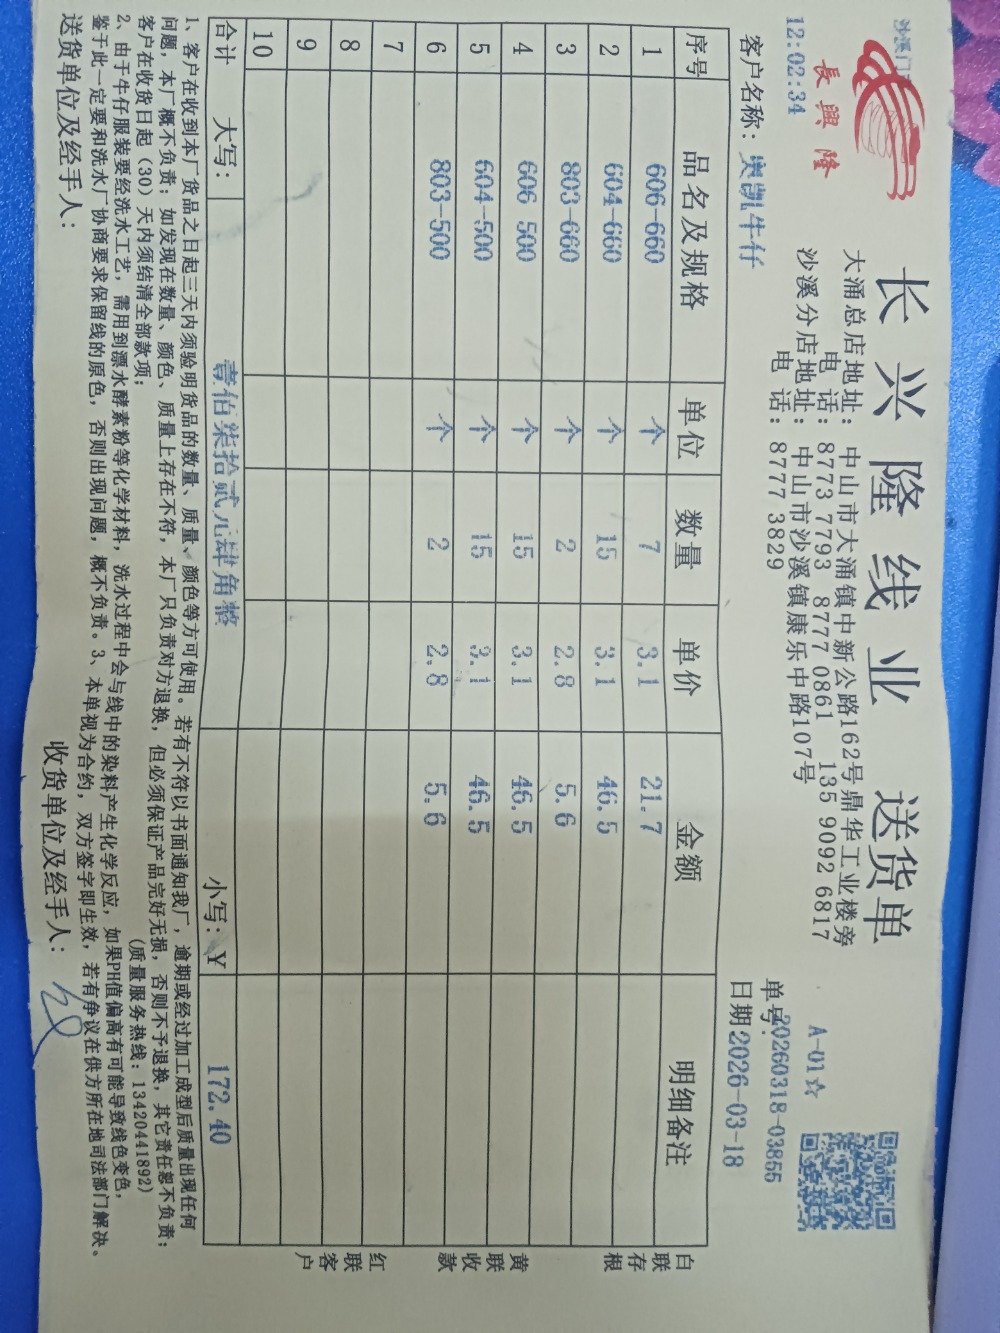 沙溪门
長興隆
12:02:34
长兴隆线业 送货单
大涌总店地址：中山市大涌镇中新公路162号鼎华工业楼旁
电 话：8773 7793 8777 0861 135 9092 6817
沙溪分店地址：中山市沙溪镇康乐中路107号
电 话：8777 3829
A-01☆
单号：20260318-03855
客户名称：奥凯牛仔 日期：2026-03-18
序号 品名及规格 单位 数量 单价 金额 明细备注
1 606-660 个 7 3.1 21.7
2 604-660 个 15 3.1 46.5
3 803-660 个 2 2.8 5.6
4 606 500 个 15 3.1 46.5
5 604-500 个 15 3.1 46.5
6 803-500 个 2 2.8 5.6
7
8
9
10
合计 大写： 壹佰柒拾贰元肆角整 小写：￥ 172.40
白联存根
黄联收款
红联客户
1、客户在收到本厂货品之日起三天内须验明货品的数量、质量、颜色等方可使用。若有不符以书面通知我厂，逾期或经过加工成型后质量出现任何
问题，本厂概不负责；如发现在数量、颜色、质量上存在不符，本厂只负责对方退换，但必须保证产品完好无损，否则不予退换，其它责任恕不负责；
客户在收货日起（30）天内须结清全部款项； (质量服务热线：13420441892)
2、由于牛仔服装要经洗水工艺，需用到漂水酵素粉等化学材料，洗水过程中会与线中的染料产生化学反应，如果PH值偏高有可能导致线色变色，
鉴于此一定要和洗水厂协商要求保留线的原色，否则出现问题，概不负责。3、本单视为合约，双方签字即生效，若有争议在供方所在地司法部门解决。
送货单位及经手人： 收货单位及经手人：